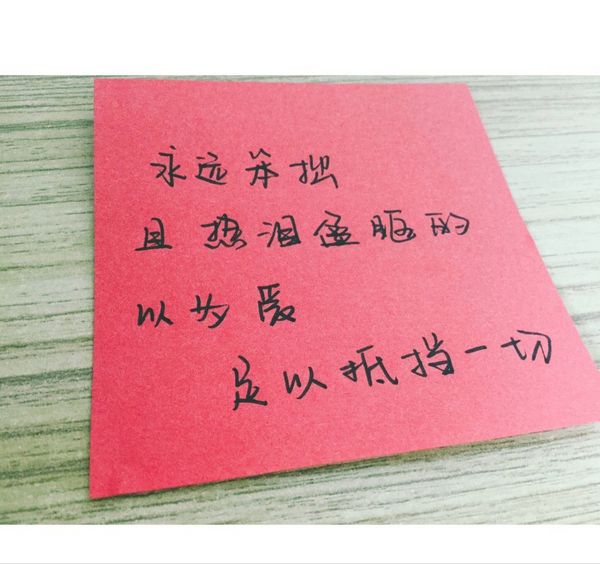 永远笨拙
且热泪盈眶的
以为爱
足以抵挡一切